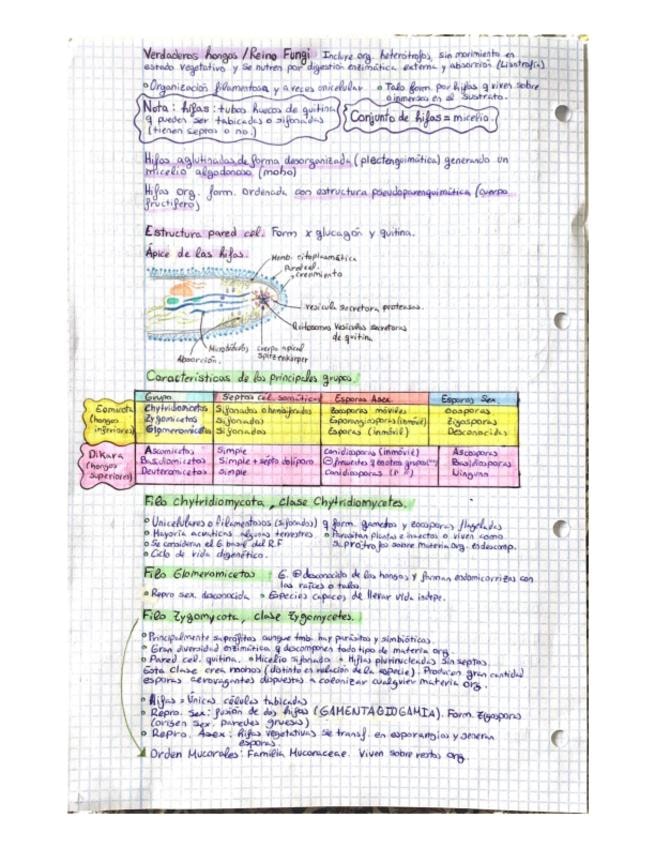 Verdaderos hongos /Reino Fungi. Incluye org. heterótrofos, sin movimiento en
estado vegetativo y se nutren por digestión enzimática externa y absorción (Lisotrofía)
Organización filamentosa y a veces unicelular
Talo form. por hifas q viven sobre
o inmersa en el sustrato.
Nota: hifas: tubos huecos de quitina
q pueden ser tabicadas o sifonadas
(tienen septos o no.)
Conjunto de hifas = micelio.
Hifas aglutinadas de forma desorganizada (plectenquimática) generando un
micelio algodonoso (moho)
Hifas org. form. ordenada con estructura pseudoparenquimática (cuerpo
fructífero)
Estructura pared cel. Form x glucagón y quitina.
Ápice de las hifas.
Memb. citoplasmática
Pared cel.
crecimiento
vesícula secretora proteasas.
Quitosomas Vesículas secretoras
de quitina
Microtúbulos
cuerpo apical
Spitzenkörper
Absorción.
Características de los principales grupos.
Grupo Septos cel. somáticas Esporas Asex. Esporas Sex
Eomicota
(hongos
inferiores)
Chytridiomicetos Sifonados o hemisifonados Zoosporas móviles Oosporas
Zygomicetos Sifonados Esporangiosporas (inmóvil) Zigosporas
Glomeromicetos Sifonados Esporas (inmóvil) Desconocidas
Dikara
(hongos
superiores)
Ascomicetos Simple Conidiosporas (inmóvil) Ascosporas
Basidiomicetos Simple + septo dolíporo Basidiosporas
Deuteromicetos Simple Conidiosporas Ninguna
Filo Chytridiomycota, clase Chytridiomycetes.
Unicelulares o filamentosos (sifonados) q form. gametos y zoosporas flageladas
Mayoría acuáticas, algunos terrestres.
Parasitan plantas e insectos o viven como
Se consideran el G basal del R.F
saprótrofos sobre materia org. en descomp.
Ciclo de vida digenético.
Filo Glomeromicetos G. desconocido de los hongos y forman endomicorrizas con
las raíces o talos.
Repro sex. desconocida
Especies capaces de llevar vida indepe.
Filo Zygomycota, clase Zygomycetes.
Principalmente saprófitos aunque tmb. hay parásitos y simbióticos.
Gran diversidad enzimática q descomponen todo tipo de materia org.
Pared cel. quitina
Micelio sifonado
Hifas plurinucleadas sin septos.
Esta clase crea mohos (distinto en relación de la especie). Producen gran cantidad
esporas aerovagantes dispuestas a colonizar cualquier materia org.
Hifas = Únicas células tabicadas
Repro. Sex: fusión de dos hifas (GAMENTAGIOGAMIA). Form. Zigospora
(origen sex. paredes gruesas)
Repro. Asex: hifas vegetativas se transf. en esporangios y generan
esporas.
Orden Mucorales: Familia Mucoraceae. Viven sobre restos org.